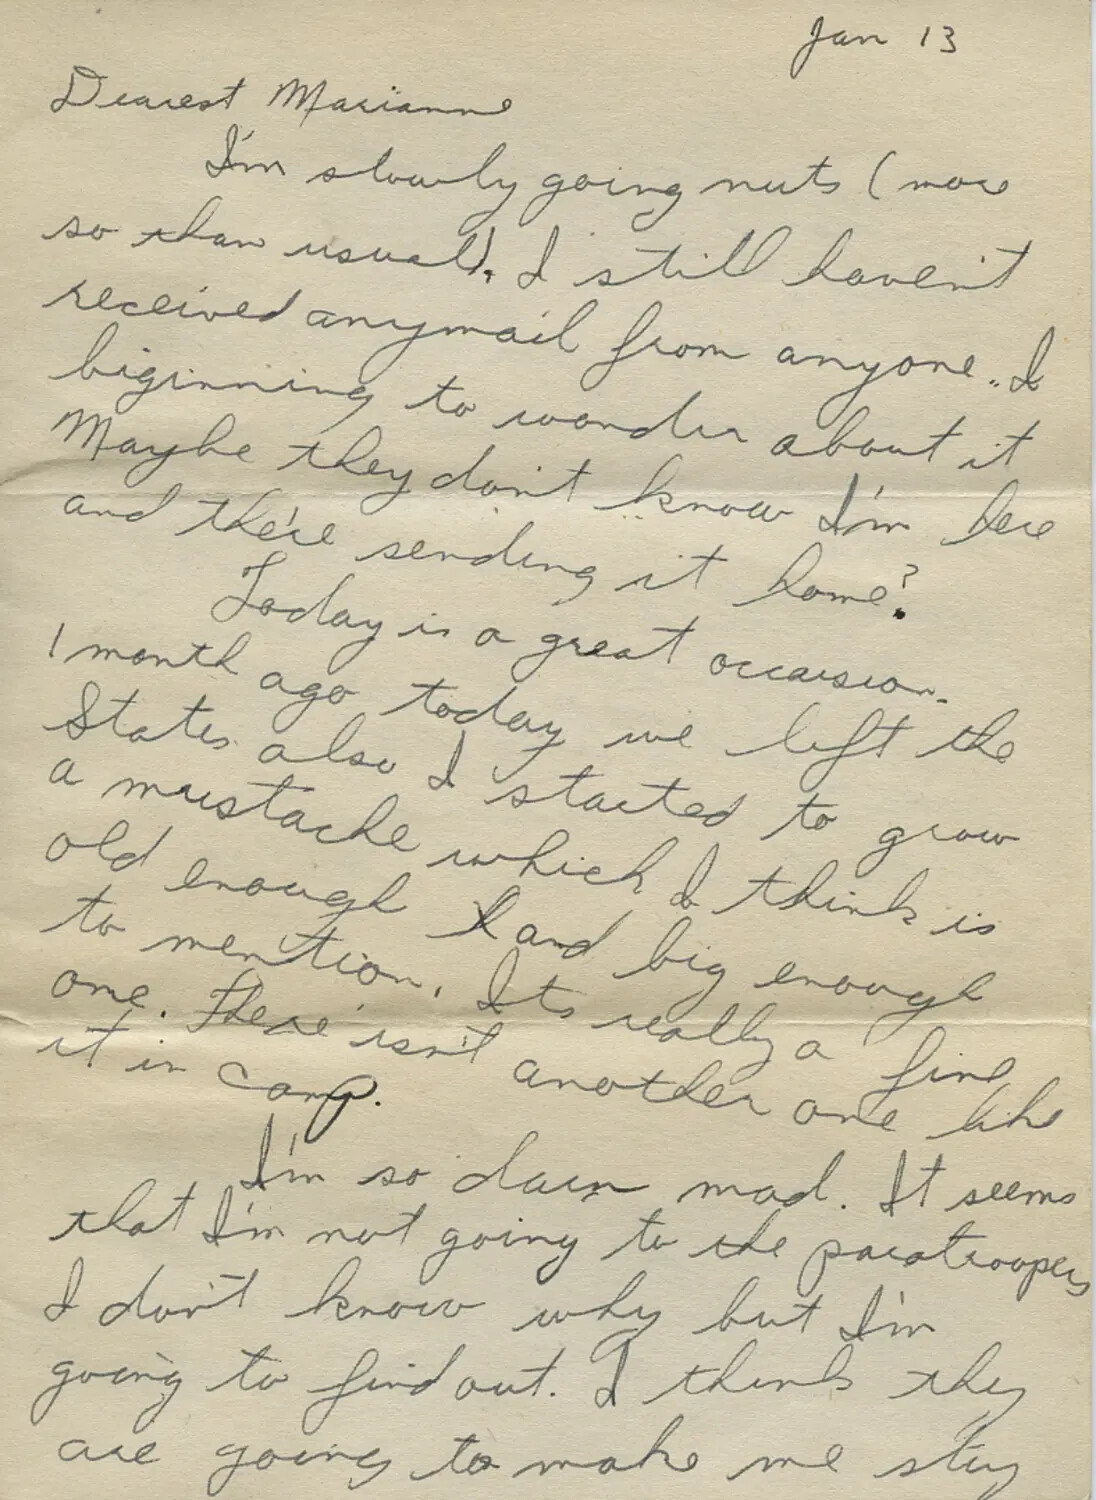 Jan 13
Dearest Marianne
I'm slowly going nuts (more
so than usual). I still haven't
received anymail from anyone. I
biginning to wonder about it
Maybe they don't know I'm here
and the're sending it home?
Today is a great occaision.
1 month ago today we left the
States also I started to grow
a mustache which I think is
old enough and big enough
to mention. Its really a fine
one. There isn't another one like
it in camp.
I'm so darn mad. It seems
that I'm not going to the paratroopers
I don't know why but I'm
going to find out. I think they
are going to make me stay